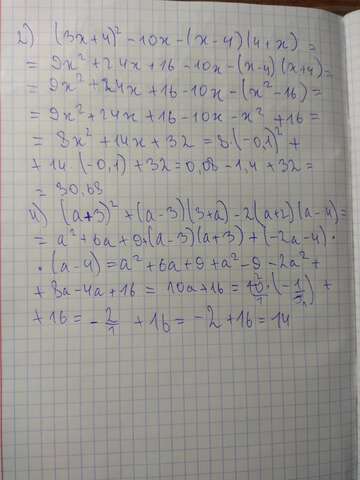 2) (3x+4)² - 10x - (x-4)(4+x) =
= 9x² + 24x + 16 - 10x - (x-4)(x+4) =
= 9x² + 24x + 16 - 10x - (x² - 16) =
= 9x² + 24x + 16 - 10x - x² + 16 =
= 8x² + 14x + 32 = 8·(-0,1)² +
+ 14·(-0,1) + 32 = 0,08 - 1,4 + 32 =
= 30,68
4) (a+3)² + (a-3)(3+a) - 2(a+2)(a-4) =
= a² + 6a + 9 + (a-3)(a+3) + (-2a-4)·
·(a-4) = a² + 6a + 9 + a² - 9 - 2a² +
+ 8a - 4a + 16 = 10a + 16 = 10·(-1/5) +
+ 16 = -2/1 + 16 = -2 + 16 = 14